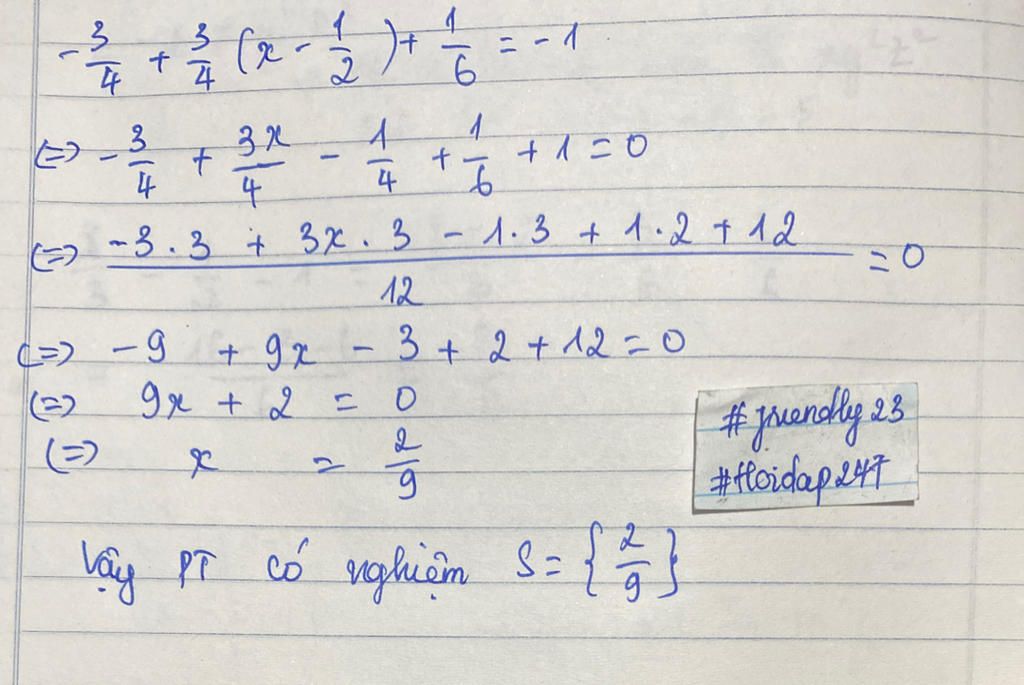 -3/4 + 3/4 (x - 1/2) + 1/6 = -1
(=) -3/4 + 3x/4 - 1/4 + 1/6 + 1 = 0
(=) (-3.3 + 3x.3 - 1.3 + 1.2 + 12)/12 = 0
(=) -9 + 9x - 3 + 2 + 12 = 0
(=) 9x + 2 = 0
(=) x = 2/9
#friendly23
#Hoidap247
Vậy PT có nghiệm S = {2/9}